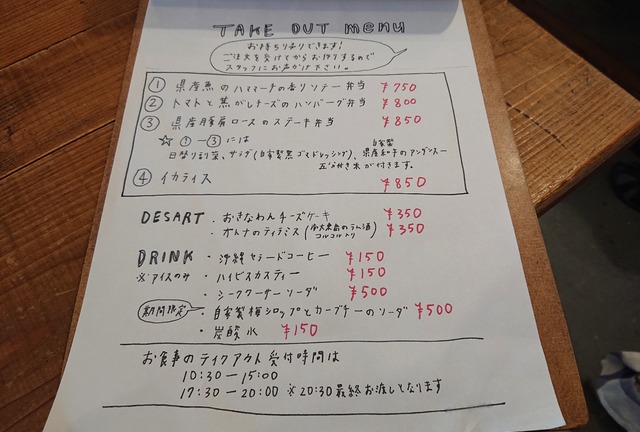 TAKE OUT menu
お持ち帰りできます!
ご注文を受けてからお作りするので
スタッフにお声がけ下さい。
① 県産魚のハマチの香りソテー弁当 ¥750
② トマトと焦がしチーズのハンバーグ弁当 ¥800
③ 県産豚肩ロースのステーキ弁当 ¥850
☆ ①ー③には
日替り惣菜、サラダ(自家製黒ゴマドレッシング)、自家製県産和牛のアンダンスー
五分付き米が付きます。
④ イカライス ¥850
DESART ・おきなわんチーズケーキ ¥350
・オトナのティラミス(南大東島のラム酒コルコル入り) ¥350
DRINK ・沖縄セラードコーヒー ¥150
※アイスのみ ・ハイビスカスティー ¥150
・シークワーサーソーダ ¥500
期間限定 ・自家製梅シロップとカーブチーのソーダ ¥500
・炭酸水 ¥150
お食事のテイクアウト受付時間は
10:30ー15:00
17:30ー20:00 ※20:30最終お渡しとなります